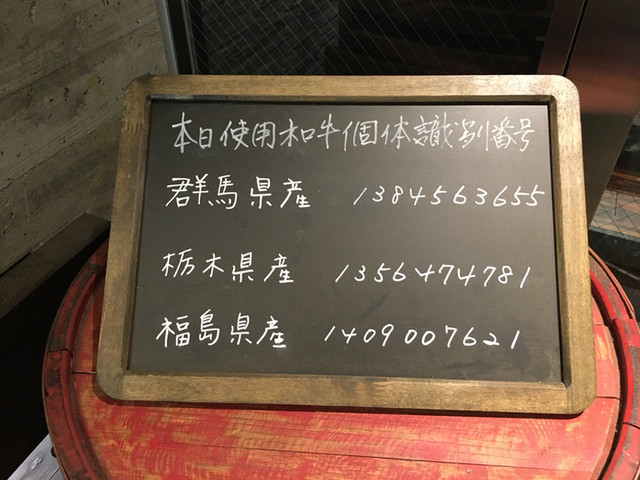 本日使用和牛個体識別番号
群馬県産 1384563655
栃木県産 1356474781
福島県産 1409007621